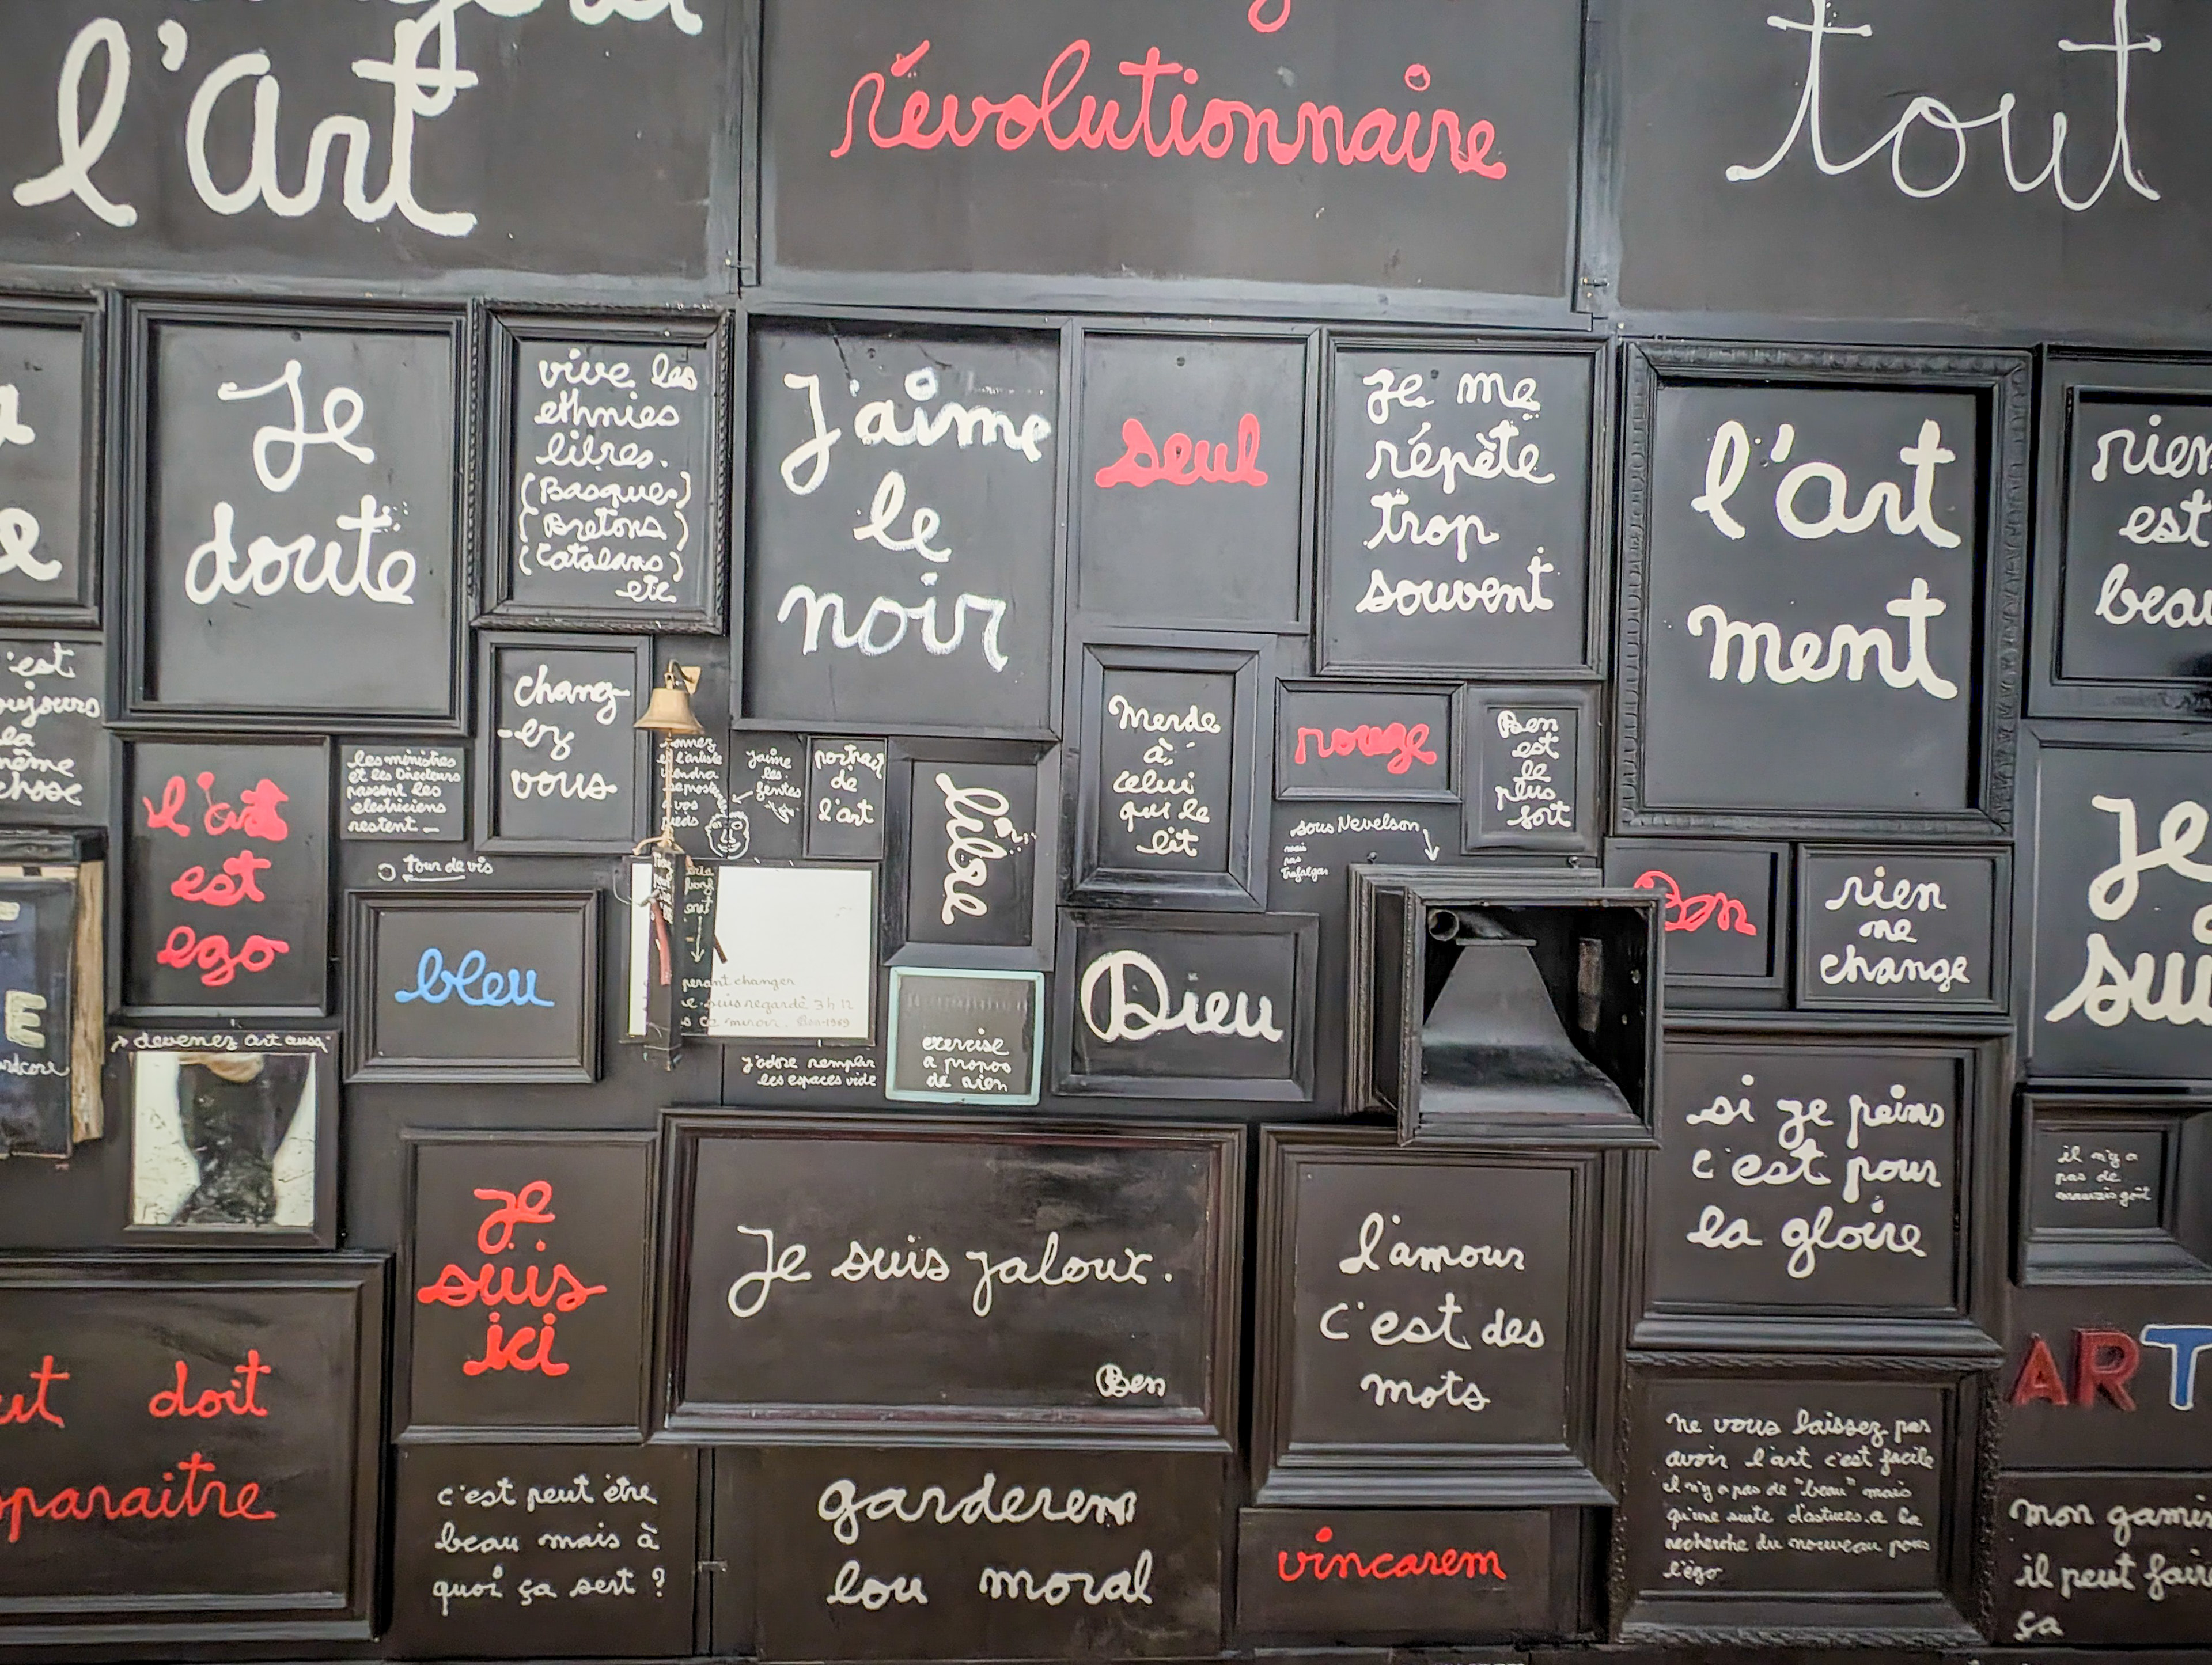 l'art
révolutionnaire
tout
Je
doute
vive les
ethnies
libres.
(Basques)
(Bretons)
(Catalans)
etc
J'aime
le
noir
seul
je me
répète
trop
souvent
l'art
ment
rien
est
beau
'est
la
même
chose
l'art
est
ego
les ministres
et les Directeurs
passent les
electriciens
restent
chang-
-ez
vous
j'aime
les
portrait
de
l'art
libre
Merde
à
celui
qui le
lit
rouge
Ben
est
le
plus
fort
sous Nevelson
mais
pas
Trafalgar
tour de vis
bleu
changer
regardé 3 h 12
ce miroir. Ben 1969
j'adore remplir
les espaces vide
exercise
a propos
de rien
Dieu
Ben
rien
ne
change
Je
suis
E
devenez art aussi
je
suis
ici
Je suis jaloux.
Ben
l'amour
c'est des
mots
si je peins
c'est pour
la gloire
il n'y a
pas de
mauvais goût
ART
doit
c'est peut être
beau mais à
quoi ça sert ?
garderem
lou moral
vincarem
ne vous laissez pas
avoir l'art c'est facile
il n'y a pas de "beau" mais
qu'une suite d'astuces a la
recherche du nouveau pour
l'égo
mon gamin
il peut faire
ça